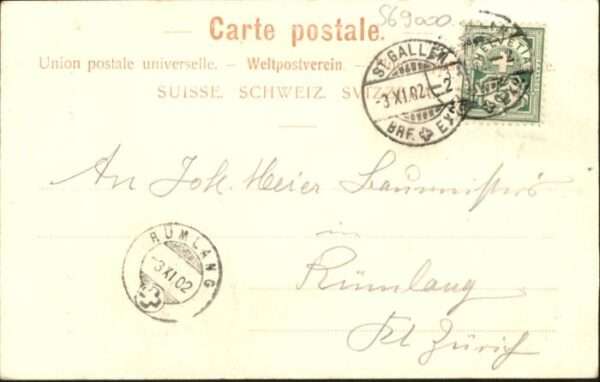 569000.
Carte postale.
Union postale universelle. – Weltpostverein.
SUISSE. SCHWEIZ.
ST. GALLEN
-3.XI.02.
BRF. EXP.
HELVETIA
An Joh. Meier Baumeister's
in
Rümlang
Kt Zürich
RÜMLANG
-3.XI.02